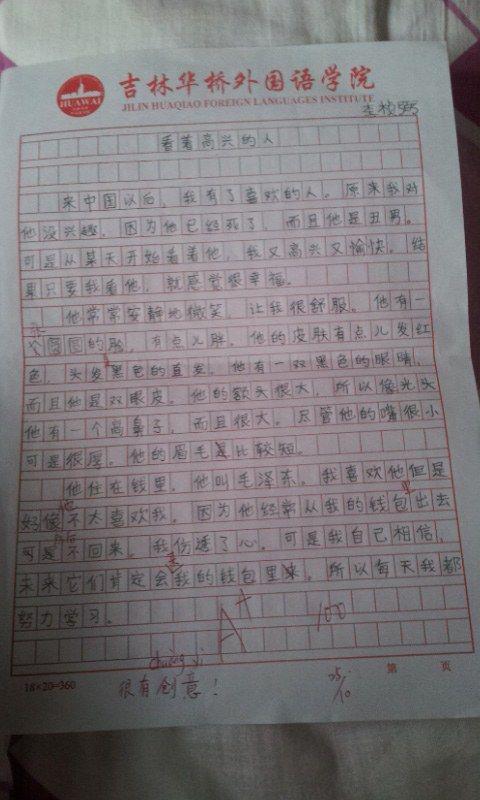 HUAWAI
吉林华桥外国语学院
JILIN HUAQIAO FOREIGN LANGUAGES INSTITUTE
看着高兴的人
来中国以后，我有了喜欢的人。原来我对
他没兴趣。因为他已经死了，而且他是丑男。
可是从某天开始看着他，我又高兴又愉快。结
果只要我看他，就感觉很幸福。
他常常安静地微笑，让我很舒服。他有一
张
个圆圆的脸，有点儿胖。他的皮肤有点儿发红
色，头发黑色的直发。他有一双黑色的眼睛，
而且他是双眼皮。他的额头很大，所以像光头
他有一个高鼻子，而且很大。尽管他的嘴很小
可是很厚。他的眉毛是比较短。
他住在钱里。他叫毛泽东。我喜欢他但是
他
好像不太喜欢我。因为他经常从我的钱包出去
里
可是不回来。我伤透了心。可是我自己相信，
来
未来它们肯定会我的钱包里来。所以每天我都
努力学习。
A+
100
chuàng yì
很有创意！
25/10
18×20=360
第 页